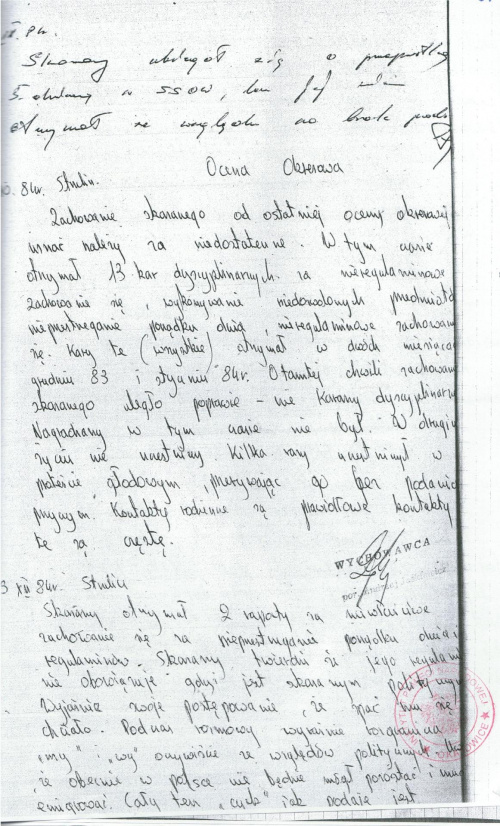 Skazany ubiegał się o przepustkę
otrzymał ze względu na brak
Ocena Okresowa
84r. Strulin.
Zachowanie skazanego od ostatniej oceny okresowej
uznać należy za niedostateczne. W tym czasie
otrzymał 13 kar dyscyplinarnych za nieregulaminowe
zachowanie się, wykonywanie niedozwolonych przedmiotó
nieprzestrzeganie porządku dnia, nieregulaminowe zachowani
się. Kary te (wszystkie) otrzymał w dwóch miesiąca
grudniu 83 i styczniu 84r. Od tamtej chwili zachowani
skazanego uległo poprawie - nie karany dyscyplinarn
Nagradzany w tym czasie nie był. W drugi
życiu nie uczestniczy. Kilka razy uczestniczył w
proteście głodowym, przerywając go bez podania
przyczyn. Kontakty rodzinne są prawidłowe kontakty
te są częste.
WYCHOWAWCA
3 XII 84r. Strulin
Skazany otrzymał 2 raporty za niewłaściwe
zachowanie się za nieprzestrzeganie porządku dnia i
regulaminów. Skazany twierdzi że jego regulamin
nie obowiązuje gdyż jest skazanym polityczny
Wyjaśnia swoje postępowanie, że spać mu się
chciało. Podczas rozmowy wyraźnie rozgranicza
"my" i "wy" oczywiście ze względów politycznych
że obecnie w polsce nie będzie mógł pozostać i musi
emigrować. Cały ten "cyrk" jak podaje jest